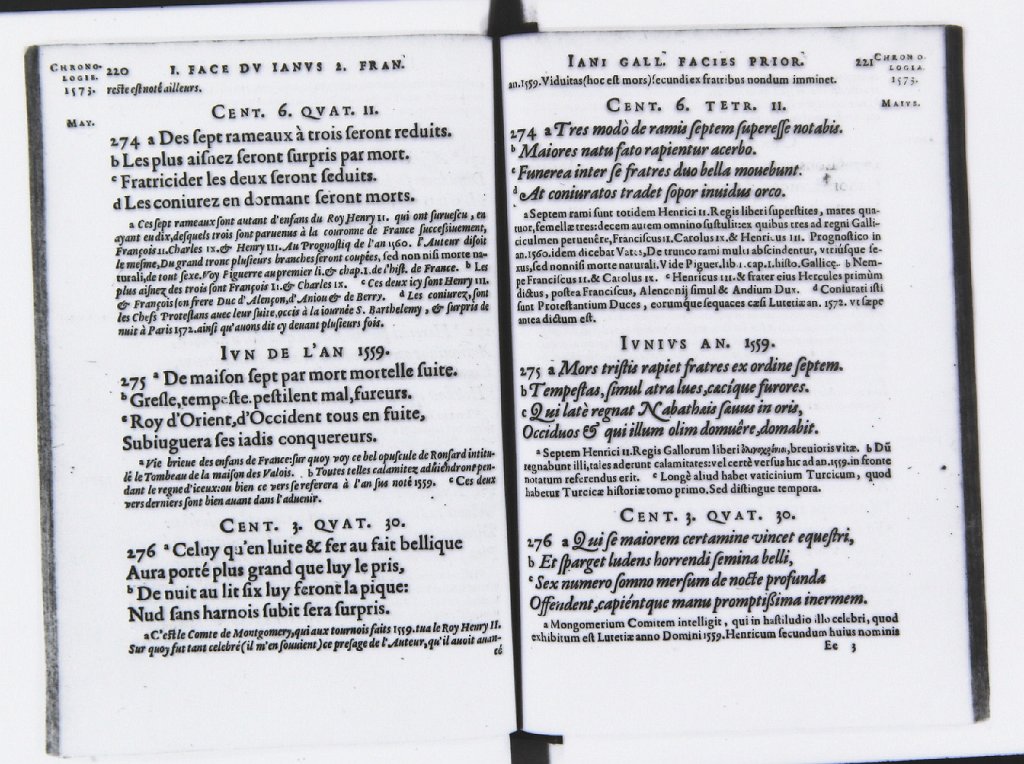 CHRONO-
LOGIE.
1573.
220 I. FACE DV IANVS 2. FRAN.
reste est noté ailleurs.
MAY.
CENT. 6. QVAT. 11.
274 a Des sept rameaux à trois seront reduits.
b Les plus aisnez seront surpris par mort.
c Fratricider les deux seront seduits.
d Les coniurez en dormant seront morts.
a Ces sept rameaux sont autant d'enfans du Roy Henry 11. qui ont suruescu, en
ayant eu dix, desquels trois sont paruenus à la couronne de France successiuement,
François 11. Charles ix. & Henry 111. Au Prognostiq de l'an 1560. l'Auteur disoit
le mesme, Du grand tronc plusieurs branches seront coupées, sed non nisi morte na-
turali, de tout sexe. Voy Piguerre au premier li. & chap. 1. de l'hist. de France. b Les
plus aisnez des trois sont François 11. & Charles ix. c Ces deux icy sont Henry 111.
& François son frere Duc d'Alençon, d'Aniou & de Berry. d Les coniurez, sont
les Chefs Protestans auec leur suite, occis à la iournée S. Barthelemy, & surpris de
nuit à Paris 1572. ainsi qu'auons dit cy deuant plusieurs fois.
IVN DE L'AN 1559.
275 a De maison sept par mort mortelle suite.
b Gresle, tempeste, pestilent mal, fureurs.
c Roy d'Orient, d'Occident tous en fuite,
Subiuguera ses iadis conquereurs.
a Vie brieue des enfans de France: sur quoy voy ce bel opuscule de Ronsard intitu-
lé le Tombeau de la maison des Valois. b Toutes telles calamitez aduiendront pen-
dant le regne d'iceux: ou bien ce vers se referera à l'an sus noté 1559. c Ces deux
vers derniers sont bien auant dans l'aduenir.
CENT. 3. QVAT. 30.
276 a Celuy qu'en luite & fer au fait bellique
Aura porté plus grand que luy le pris,
b De nuit au lit six luy feront la pique:
Nud sans harnois subit sera surpris.
a C'est le Comte de Montgomery, qui aux tournois faits 1559. tua le Roy Henry 11.
Sur quoy fut tant celebré (il m'en souuient) ce presage de l'Auteur, qu'il auoit auan-
cé
IANI GALL. FACIES PRIOR. 221
CHRONO-
LOGIA.
1573.
an. 1559. Viduitas (hoc est mors) secundi ex fratribus nondum imminet.
MAIVS.
CENT. 6. TETR. 11.
274 a Tres modò de ramis septem superesse notabis.
b Maiores natu fato rapientur acerbo.
c Funerea inter se fratres duo bella mouebunt.
d At coniuratos tradet sopor inuidus orco.
a Septem rami sunt totidem Henrici 11. Regis liberi superstites, mares qua-
tuor, femellæ tres: decem autem omnino sustulit: ex quibus tres ad regni Galli-
ci culmen peruenêre, Franciscus 11. Carolus ix. & Henricus 111. Prognostico in
an. 1560. idem dicebat Vates, De trunco rami multi abscindentur, vtriusque se-
xus, sed non nisi morte naturali. Vide Piguer. lib. 1. cap. 1. histo. Gallicę. b Nem-
pe Franciscus 11. & Carolus ix. c Henricus 111. & frater eius Hercules primùm
dictus, postea Franciscus, Alenconij simul & Andium Dux. d Coniurati isti
sunt Protestantium Duces, eorumque sequaces cæsi Lutetiæ an. 1572. vt sæpe
antea dictum est.
IVNIVS AN. 1559.
275 a Mors tristis rapiet fratres ex ordine septem.
b Tempestas, simul atra lues, cæcíque furores.
c Qui latè regnat Nabathæis sæuus in oris,
Occiduos & qui illum olim domuêre, domabit.
a Septem Henrici 11. Regis Gallorum liberi breuioris vitæ. b Dũ
regnabunt illi, tales aderunt calamitates: vel certè versus hic ad an. 1559. in fronte
notatum referendus erit. c Longè aliud habet vaticinium Turcicum, quod
habetur Turcicæ historiæ tomo primo. Sed distingue tempora.
CENT. 3. QVAT. 30.
276 a Qui se maiorem certamine vincet equestri,
b Et sparget ludens horrendi semina belli,
c Sex numero somno mersum de nocte profunda
Offendent, capiéntque manu promptißima inermem.
a Mongomerium Comitem intelligit, qui in hastiludio illo celebri, quod
exhibitum est Lutetiæ anno Domini 1559. Henricum secundum huius nominis
Ee 3